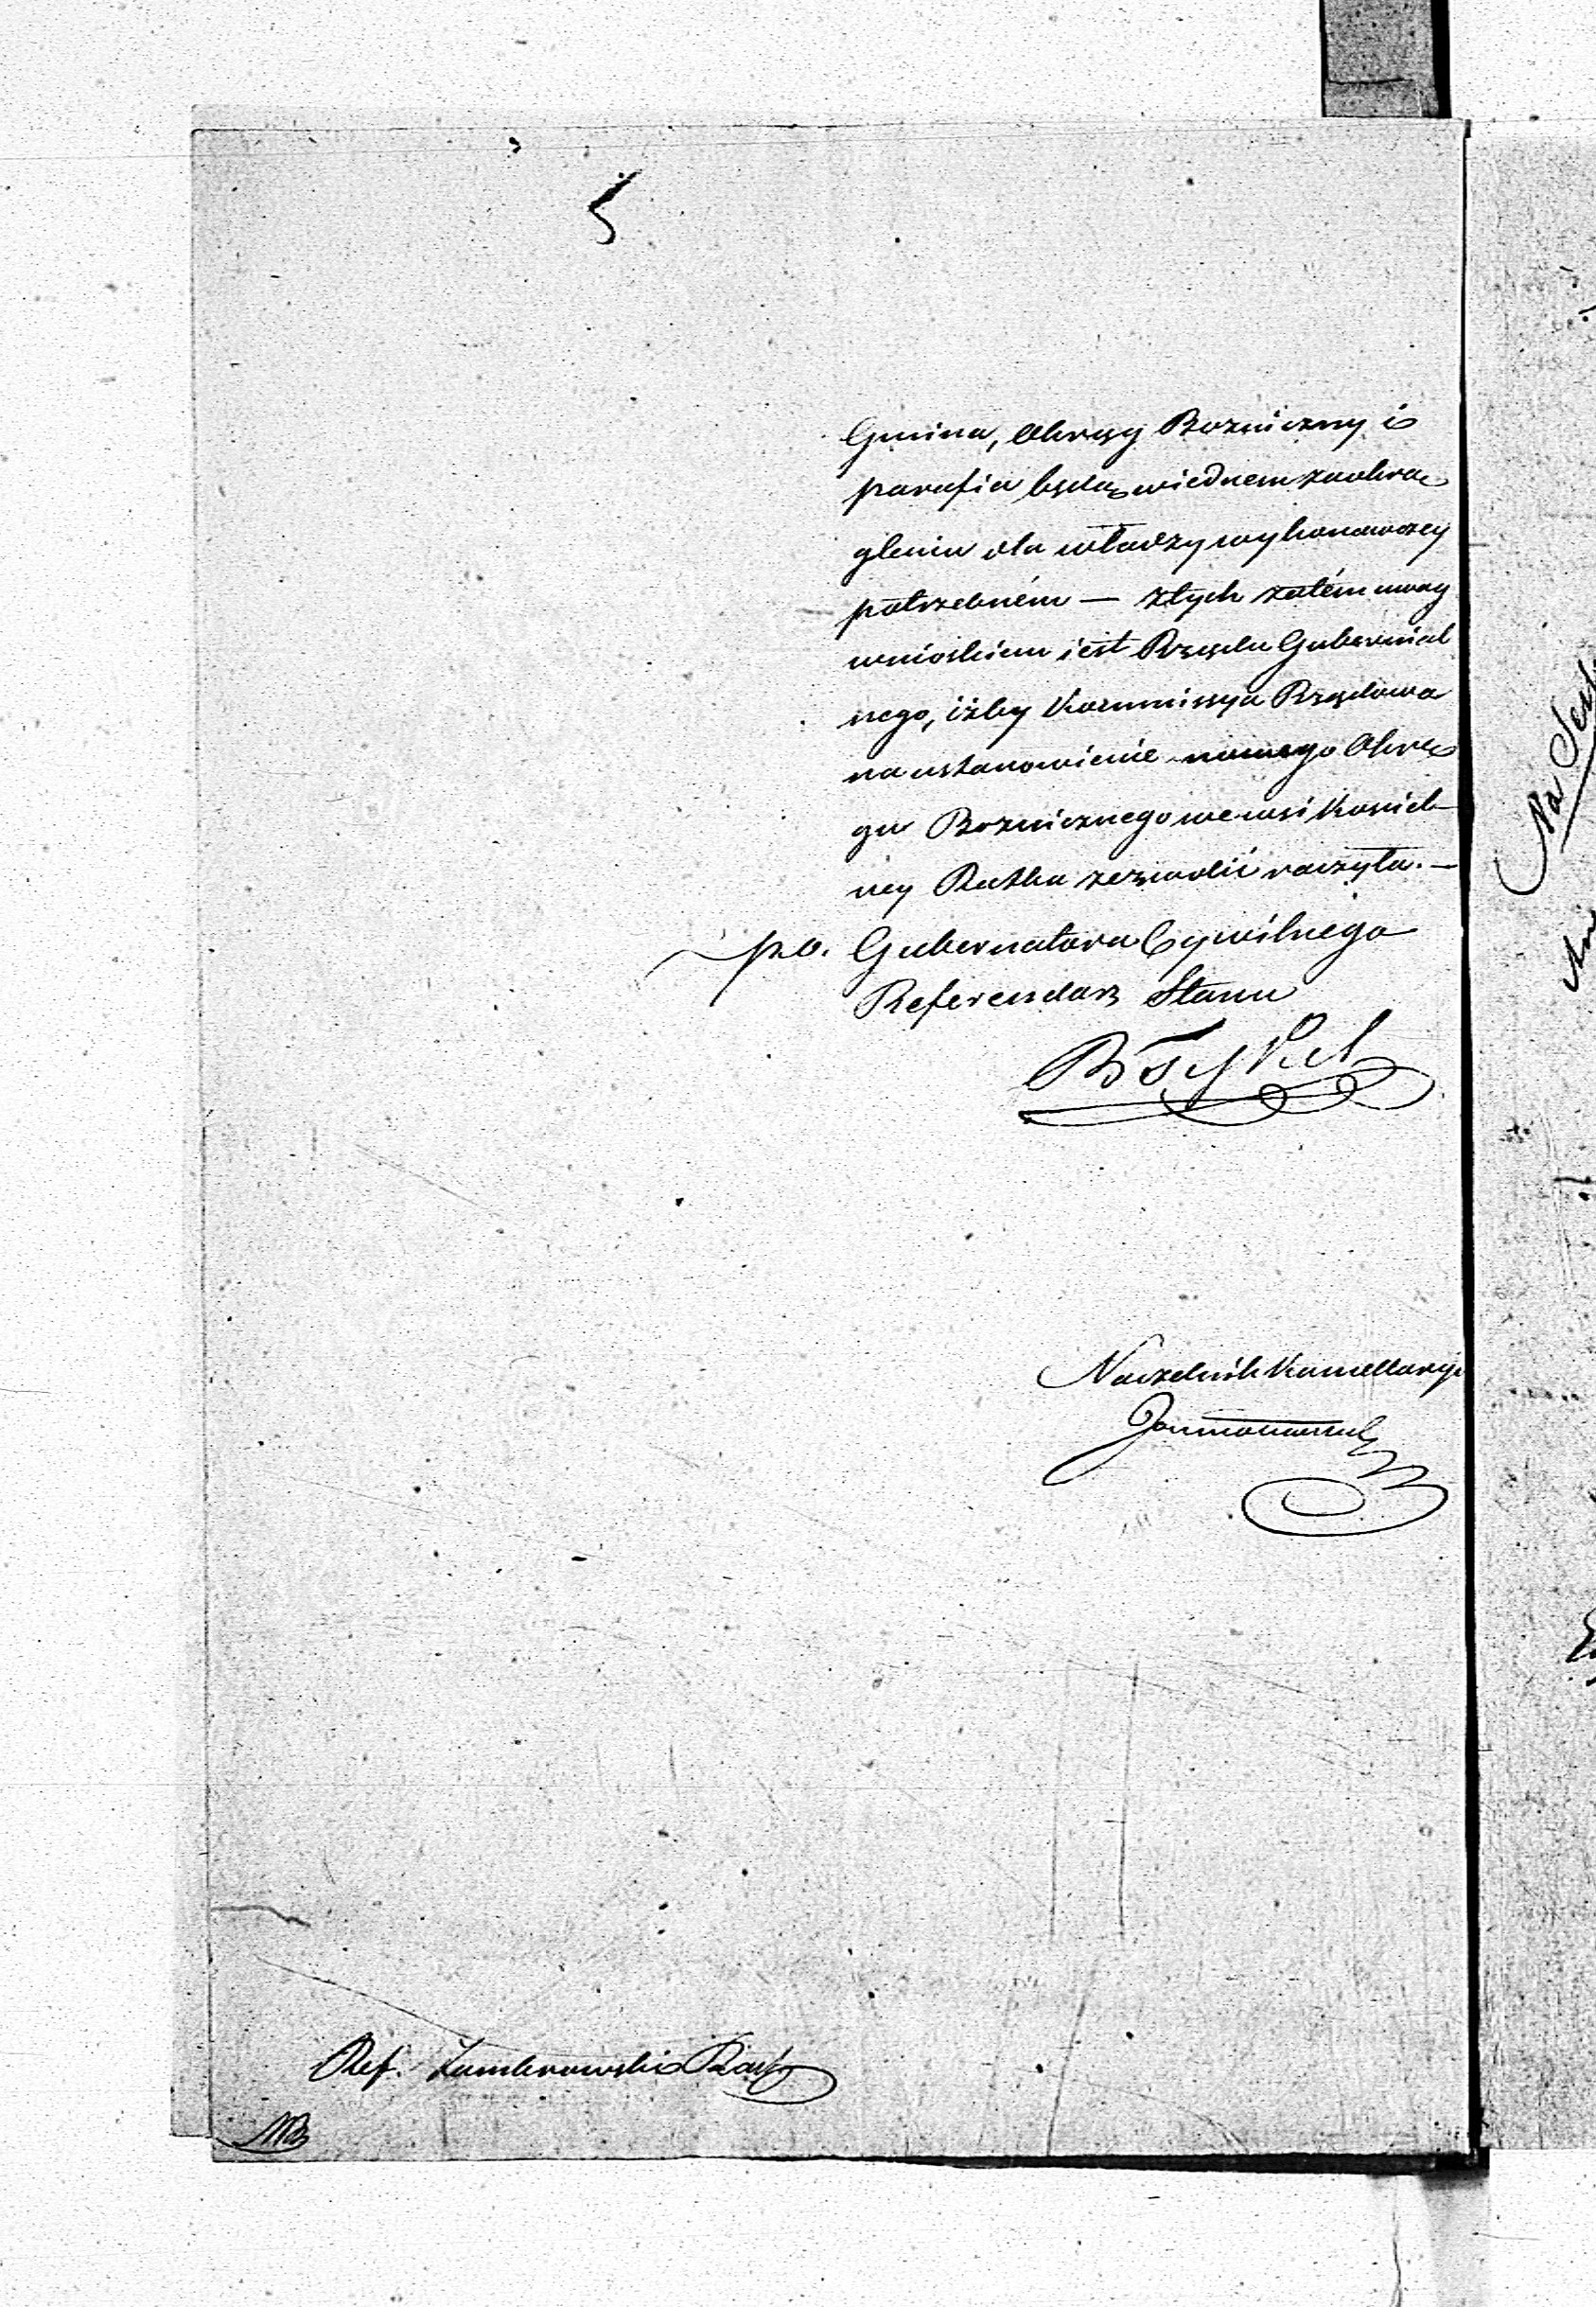 5
Gmina, Okręg Bozniczny i
parafia będą wiednem zaokrą
gleniu dla władzy wykonawczey
potrzebném — Ztych zatém uwag
wnioskiem iest Rządu Gubernial
nego, iżby Kommissya Rządowa
na ustanowienie nowego Okrę
gu Bozniczego we wsi Kosciel
ney Rutka zezwolić raczyła. —
p.o. Gubernatora Cywilnego
Referendarz Stanu
Naczelnik Kancellaryi
Ref. Zambrowski
Na